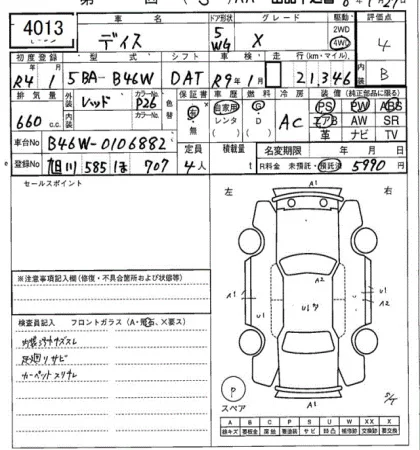 4013
車名
デイズ
ドア形状
5
WG
グレード
X
駆動
2WD
4WD
評価点
4
内装
B
初度登録
R4年1月
型式
5BA-B46W
シフト
DAT
車検
R9年1月
走行(km・マイル)
21,346
排気量
660 c.c.
外装
レッド
内装
カラーNo.
P26
カラーNo.
色替
保証書
有・無
車歴
自家用
レンタ
( )
燃料
G
D
( )
冷房
AC
装備(純正部品に限る)
PS PW ABS
エアB AW SR
革 ナビ TV
車台No
B46W-0106882
登録No
旭川 585 ほ 707
定員
4人
積載量
t
名変期限 年 月 日
R料金 未預託・預託済 5990円
セールスポイント
※注意事項記入欄(修復・不具合箇所および状態等)
検査員記入 フロントガラス(A・飛石、×要ス)
内装ヨゴレスレ
足廻リサビ
カーペットスリキレ
左
右
A1
A2
A1
U1
U1
A2
A1
A1
P
スペア
A B C P S U W X XX
線キズ